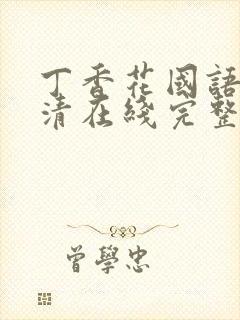 丁香花國語
清在綫完整
曾學忠